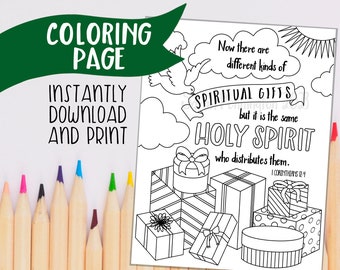 COLORING
PAGE
INSTANTLY
DOWNLOAD
AND PRINT
Now there are
different kinds of
SPIRITUAL GIFTS
but it is the same
HOLY SPIRIT
who distributes them.
1 CORINTHIANS 12:4